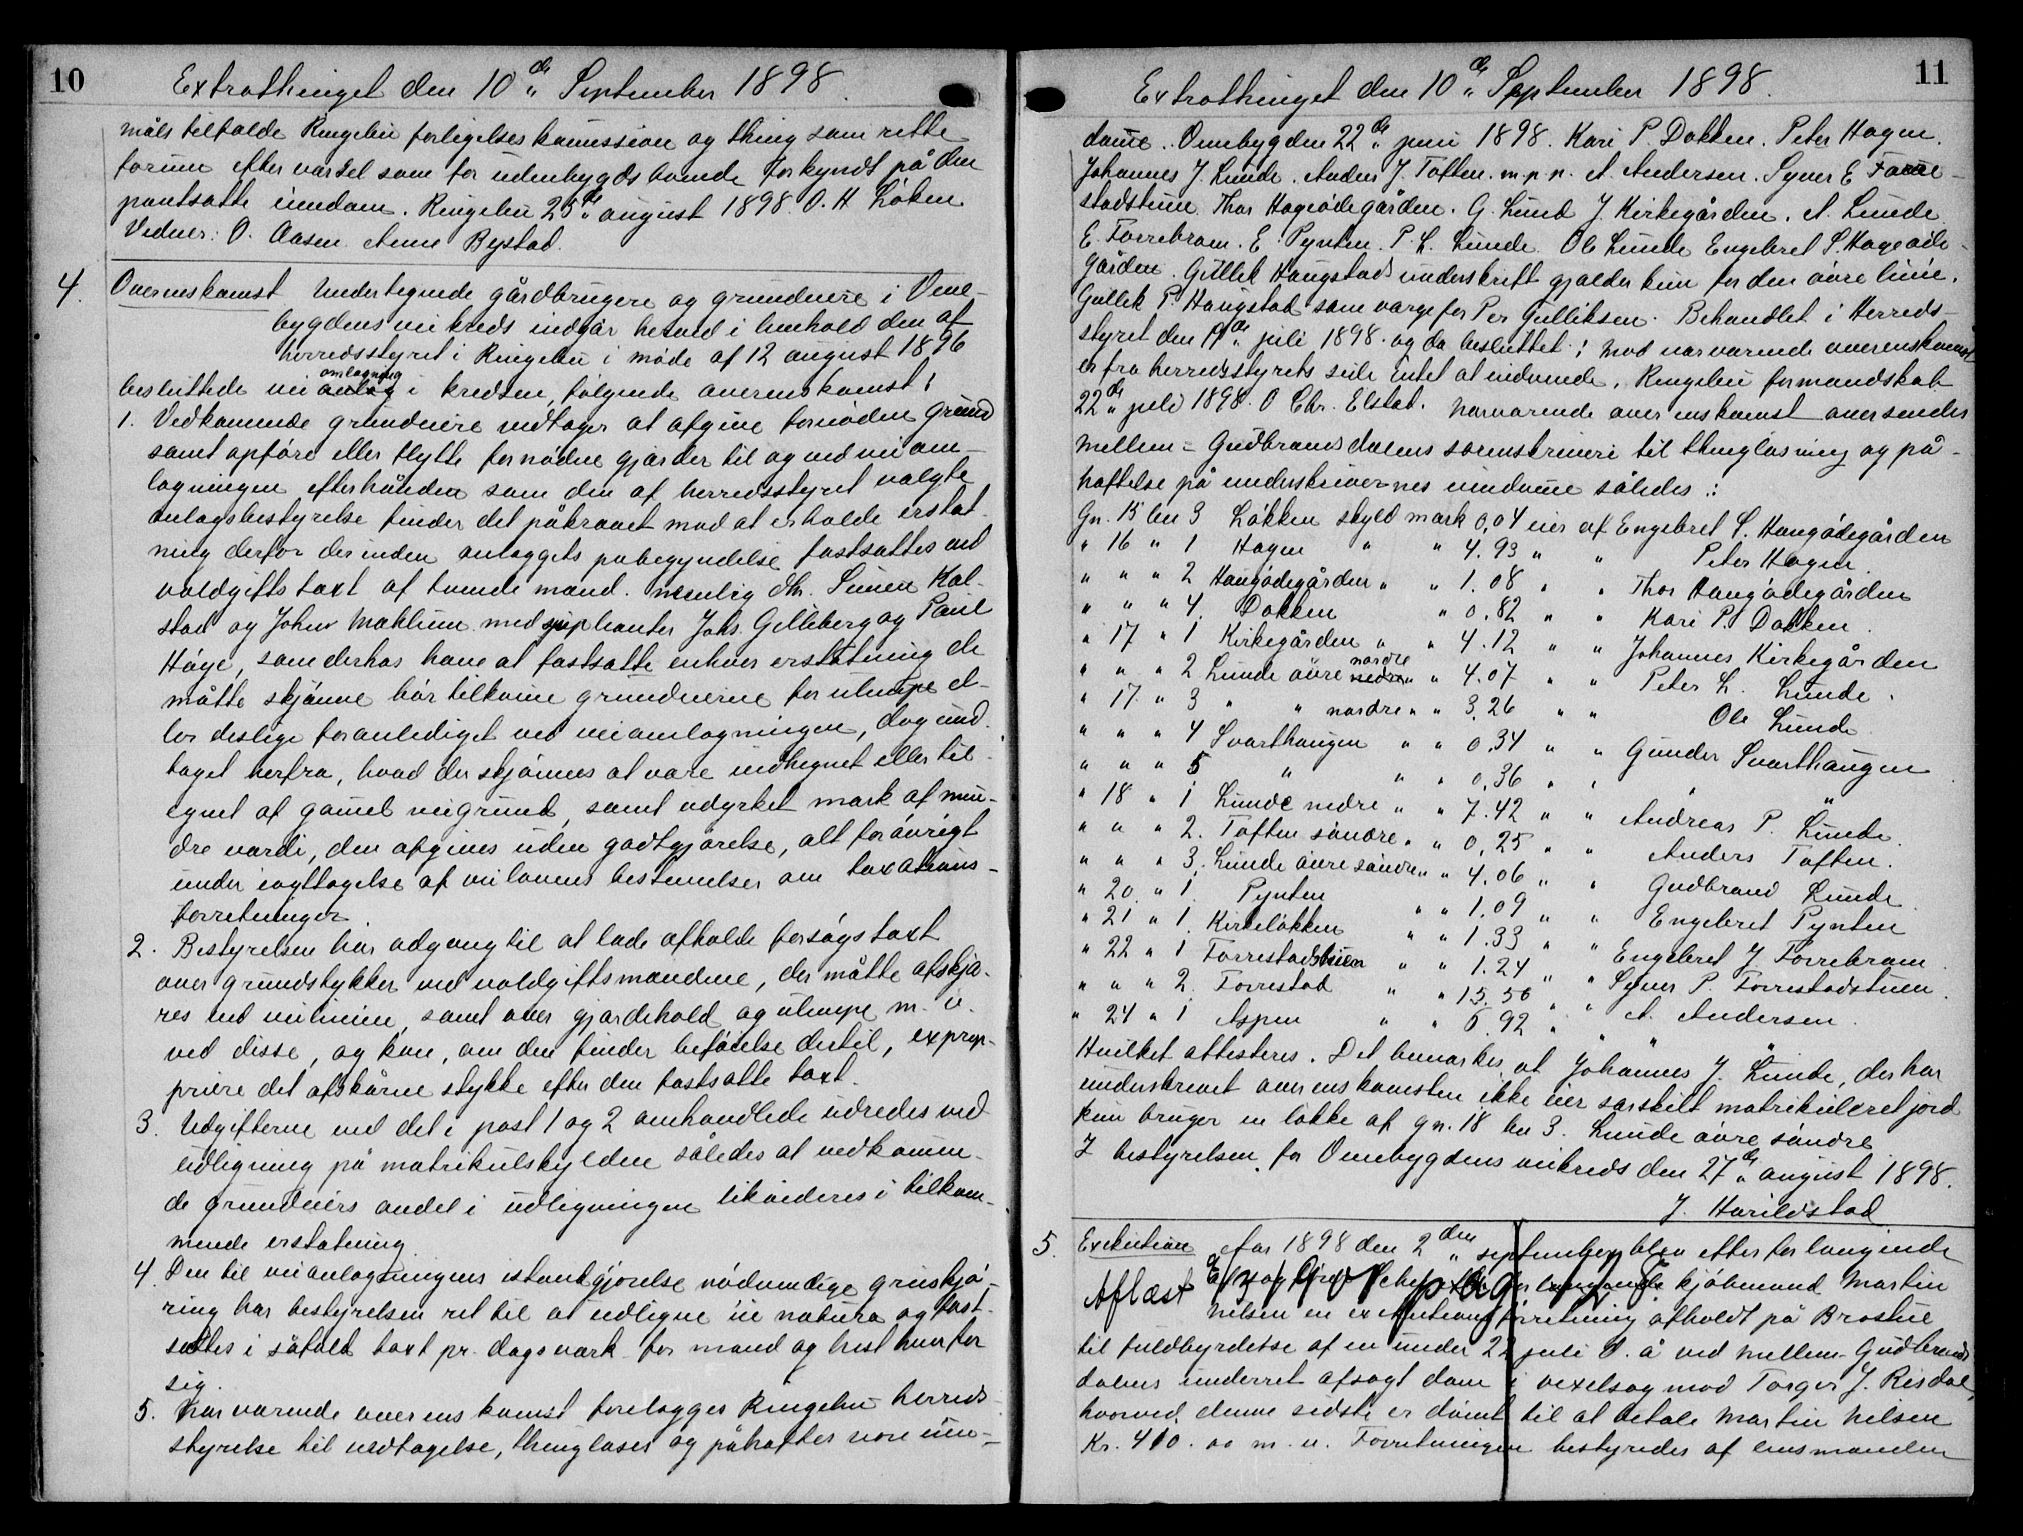 10
Extrathinget den 10de September 1898.
måls tilfælde Ringebu forligelseskommission og thing som rette
forum efter varsel som for udenbygds boende forkyndt på den
pantsatte eiendom. Ringebu 25de august 1898. O. H Løken
Vidner: O. Aasen Anne Bystad.
4. Overenskomst Undertegnede gårdbrugere og grundeiere i Vene-
bygdens veikreds indgår herved i henhold den af
herredsstyret i Ringebu i møde af 12 august 1896
besluttede vei anlæg omlægning i kredsen, følgende overenskomst:
1. Vedkommende grundeiere vedtager at afgive fornøden grund
samt opføre eller flytte fornødne gjærder til og ved veiom-
lægningen efterhånden som den af herredsstyret valgte
anlægsbestyrelse finder det påkrævet mod at erholde erstat-
ning derfor der inden anlæggets påbegyndelse fastsættes ved
voldgiftstaxt af tvende mænd. nemlig Hr. Simen Kol-
stad og Johns Mæhlum med suplianter Johs. Gilleberg og Paul
Høge, som derhos have at fastsætte enhver erstatning de
måtte skjønne bør tilkomme grundeierne for ulempe el-
ler deslige foranlediget ved veiomlægningen, dog und-
taget herfra, hvad der skjønnes at være indhegnet eller til-
egnet af gammel veigrund, samt udyrket mark af min-
dre værdi, den afgives uden godtgjørelse, alt forøvrigt
under iagttagelse af veilovens bestemmelser om taxations-
forretninger.
2. Bestyrelsen har adgang til at lade afholde forsøgstaxt
over grundstykker ved voldgiftsmændene, der måtte afskjæ-
res ved veilinien, samt over gjærdehold og ulempe m. v.
ved disse, og kan, om den finder beføielse dertil, exprop-
priere det afskårne stykke efter den fastsatte taxt.
3. Udgifterne ved det i post 1 og 2 omhandlede udredes ved
udligning på matrikulskylden således at vedkommen-
de grundeiers andel i udligningen likvideres i tilkom-
mende erstatning.
4. Den til veianlægningens istandgjørelse nødvendige gruskjø-
ring har bestyrelsen ret til at udligne in natura og fast-
sættes i såfald taxt pr. dagsværk for mand og hest hver for
sig.
5. Nærværende overenskomst forelægges Ringebu herreds-
styrelse til vedtagelse, thinglæses og påhæftes vore eien-
11
Extrathinget den 10de September 1898.
domme. Venebygden 22de juni 1898. Kari P. Dokken. Peter Hagen.
Johannes J. Lunde. Anders J. Toften. m. p. p. A. Andersen. Syver E Forre-
stadstuen. Thor Haugødegården. G. Lund J. Kirkegården. A. Lunde.
E. Forrebrom. E. Pynten. P. L. Lunde. Ole Lunde Engebret S. Haugøde-
gården. Gullik Haugstads underskrift gjælder kun for den øvre linie.
Gullik P. Haugstad som værge for Per Gulliksen. Behandlet i Herreds-
styret den 19de juli 1898. og da besluttet: Mod nærværende overenskomst
er fra herredsstyrets side intet at indvende. Ringebu formandskab
22de juli 1898. O Chr. Elstad. Nærværende overenskomst oversendes
Mellem-Gudbrandsdalens sorenskriveri til thinglæsning og på-
hæftelse på underskrivernes eiendomme således:
Gn. 15 bn 3 Løkken skyld mark 0,04 eies af Engebret S. Haugødegården
" 16 " 1 Hagen " " 4.93 " " Peter Hagen.
" " " 2 Haugødegården " " 1.08 " " Thor Haugødegården
" " " 4. Dokken " 0.82 " " Kari P. Dokken.
" 17 " 1 Kirkegården " " 4.12 " " Johannes Kirkegården
" " " 2 Lunde øvre nedre nordre " " 4.07 " " Peter L. Lunde.
" 17 " 3 " " nordre " " 3.26 " " Ole Lunde.
" " " 4 Svarthaugen " " 0.34 " " Gunder Svarthaugen
" " " 5 " " " 0,36 " " " "
" 18 " 1 Lunde nedre " " 7.42 " " Andreas P. Lunde.
" " " 2. Toften søndre " " 0,25 " " Anders Toften.
" " " 3. Lunde øvre søndre " " 4.06 " " Gudbrand Lunde.
" 20. " 1. Pynten " " 1.09 " " Engebret Pynten
" 21 " 1. Kirkeløkken " " 1.33 " " Engebret J Forrebrom.
" 22 " 1 Forrestadstuen " " 1.24 " " Syver P. Forrestadstuen.
" " " 2. Forrestad " " 15.56 " " A. Andersen.
" 24 " 1 Aspen " " 5.92 " " " "
Hvilket attesteres. Det bemærkes, at Johannes J. Lunde, der har
underskrevet overenskomsten ikke eier særskilt matrikuleret jord
kun bruger en løkke af gn. 18 bn 3. Lunde øvre søndre
I bestyrelsen for Venebygdens veikreds den 27de august 1898.
J. Harildstad
5. Exekution Aar 1898 den 2den september blev efter forlangende
Aflæst 6/3 1901 pag 128.
kjøbmand Martin
Nilsen en exekutionsforretning afholdt på Brostue
til fuldbyrdelse af en under 22 juli d. å ved Mellem-Gudbrands
dalens underret afsagt dom i vexelsag mod Torger J. Risdal,
hvorved denne sidste er dømt til at betale Martin Nilsen
Kr. 410.00 m. v. Forretningen bestyredes af lensmanden